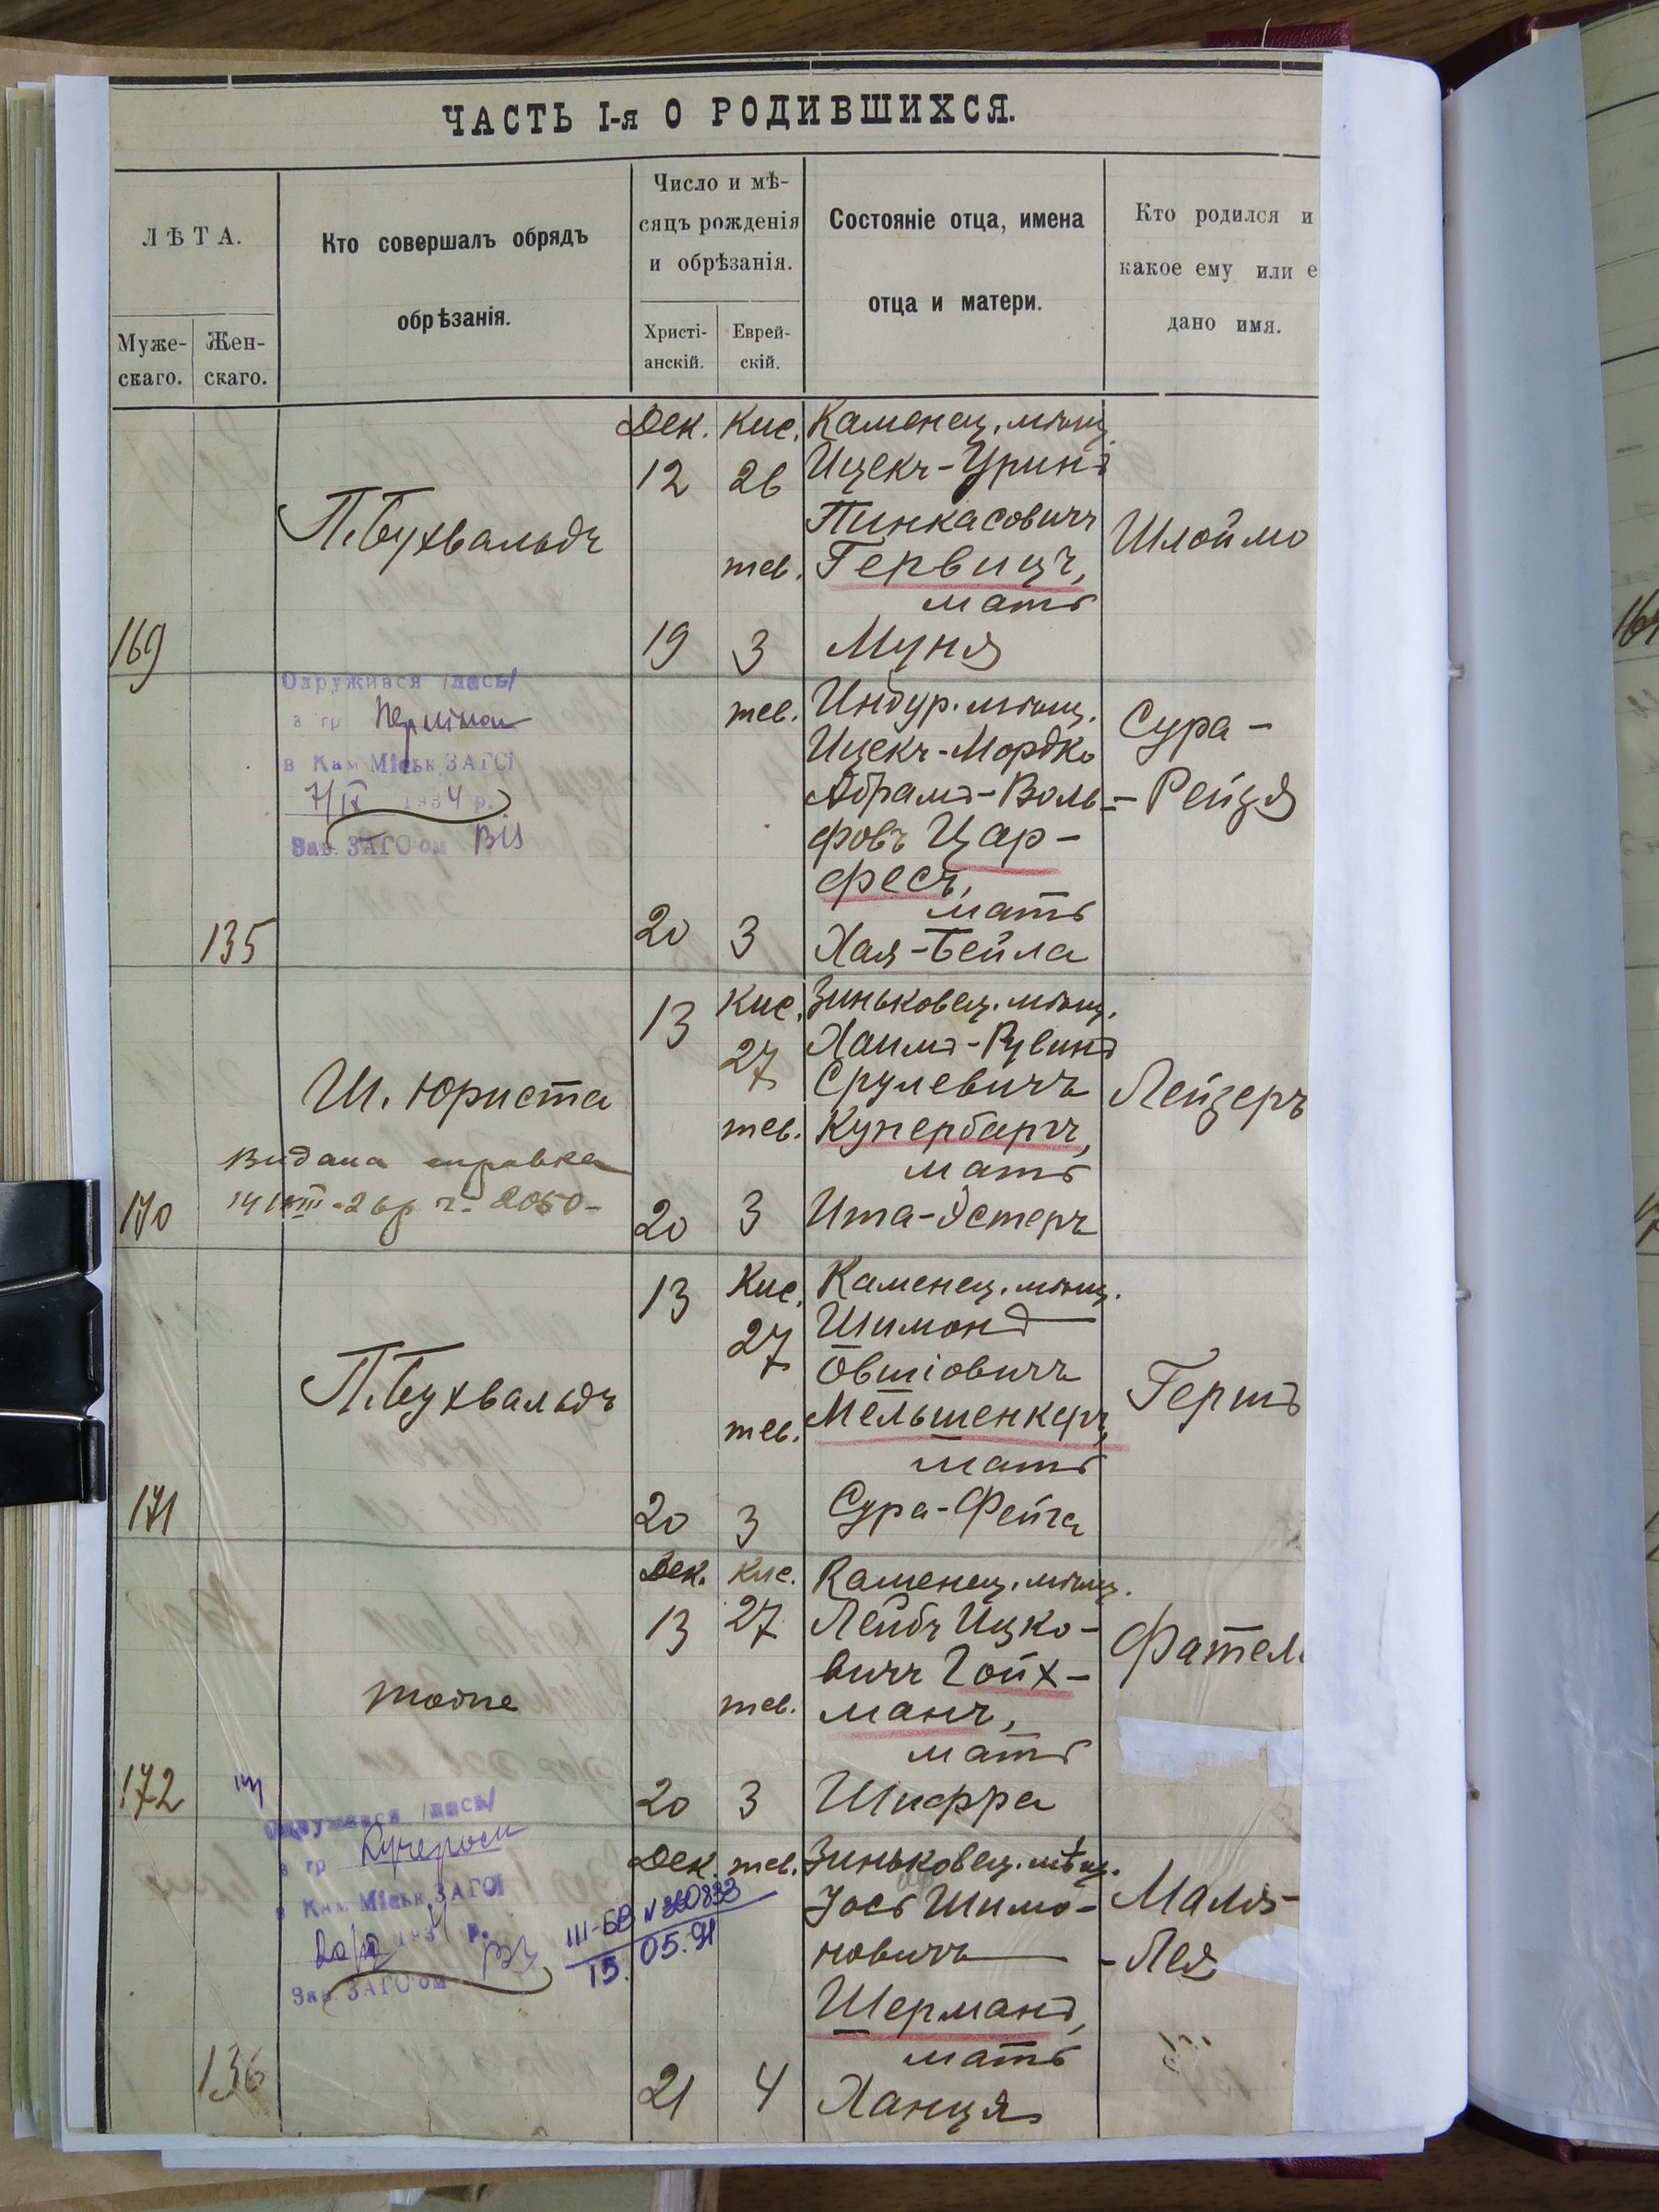 ЧАСТЬ I-я О РОДИВШИХСЯ.
ЛѢТА.
Муже-
скаго.
Жен-
скаго.
Кто совершалъ обрядъ
обрѣзанія.
Число и мѣ-
сяцъ рожденія
и обрѣзанія.
Христі-
анскій.
Еврей-
скій.
Состояніе отца, имена
отца и матери.
Кто родился и
какое ему или е
дано имя.
169
П. Бухвальдъ
Дек.
12
19
Кис.
26
тев.
3
Каменец. мѣщ.
Ицекъ-Уринъ
Пинкасовичъ
Гервицъ,
мать
Муня
Шлоймо
135
Одружився /лась/
з гр
в Кам Міськ ЗАГСІ
7/IX 1934 р.
Зав. ЗАГС'ом
20
тев.
3
Индур. мѣщ.
Ицекъ-Мордко
Абрамъ-Воль-
фовъ Цар-
фесъ,
мать
Хая-Бейла
Сура-
-Рейзя
170
Ш. Юриста
Видана справка
2050-
13
20
Кис.
27
тев.
3
Зиньковец. мѣщ.
Хаимъ-Рувинъ
Срулевичъ
Купербаргъ,
мать
Ита-Эстеръ
Лейзеръ
171
П. Бухвальдъ
13
20
Кис.
27
тев.
3
Каменец. мѣщ.
Шимонъ
Овшіовичъ
Мельшенкеръ,
мать
Сура-Фейга
Гершъ
172
тоже
Дек.
13
20
Кис.
27
тев.
3
Каменец. мѣщ.
Лейбъ Ицко-
вичъ Гойх-
манъ,
мать
Шифра
Фатель
136
Одружився /лась/
з гр
в Кам Міськ ЗАГСІ
193 р.
Зав. ЗАГС'ом
III-БВ №
15.05.91
Дек.
21
тев.
4
Зиньковец. мѣщ.
Іось Шимо-
новичъ
Шерманъ,
мать
Ханця
Маля-
-Лея